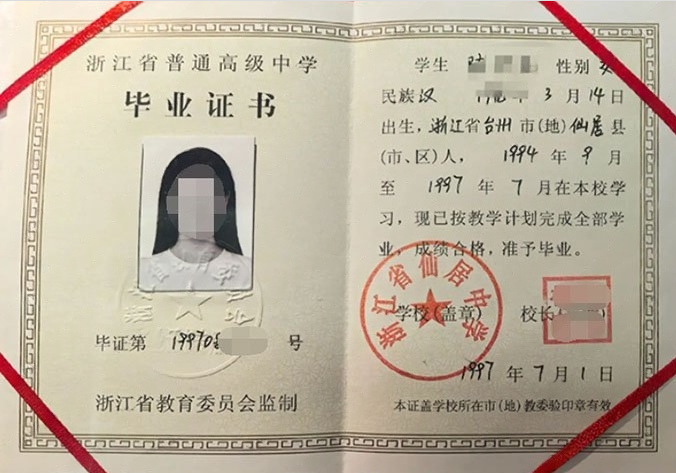 浙江省普通高级中学
毕业证书
毕证第 19970 号
浙江省教育委员会监制
学生 性别 女
民族 汉 年 3 月 14 日
出生，浙江省台州市(地)仙居县
(市、区)人， 1994 年 9 月
至 1997 年 7 月在本校学
习，现已按教学计划完成全部学
业，成绩合格，准予毕业。
浙江省仙居中学
学校(盖章) 校长
1997 年 7 月 1 日
本证盖学校所在市(地)教委验印章有效